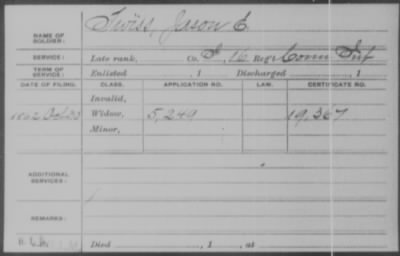 NAME OF SOLDIER: Twiss, Jason E.
SERVICE: Late rank, Co. , 16 Reg't Conn Inf
TERM OF SERVICE: Enlisted , 1 Discharged , 1
DATE OF FILING. CLASS. APPLICATION NO. LAW. CERTIFICATE NO.
Invalid,
1862 Oct 23 Widow, 5,249 19,367
Minor,
ADDITIONAL SERVICES:
REMARKS:
Died , 1 , at